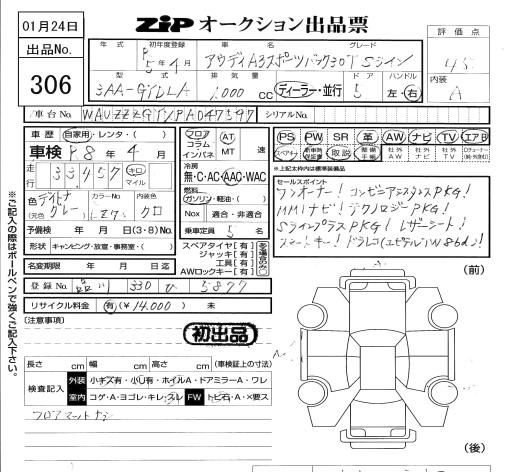 01月24日
ZiP オークション出品票
出品No.
306
年式
初年度登録
車名
グレード
R5年4月
アウディA3スポーツバック30T Sライン
評価点
4.5
型式
排気量
ドア
ハンドル
3AA-GYDLA
1,000 cc
ディーラー・並行
5
左・右
内装
A
車台No.
WAUZZZGY
シリアルNo.
車歴
自家用・レンタ・( )
車検 R8年4月
走行
33,457
キロ
マイル
色
デイトナグレー
(元色)
カラーNo.
LZ7G
内装色
クロ
予備検 年 月 日(3・8)No.
形状 キャンピング・放宣・事務室・( )
名変期限 年 月 日迄
フロア
コラム
インパネ
AT
MT
速
冷房
無・C・AC・AAC・WAC
燃料
ガソリン・軽油・( )
Nox 適合・非適合
乗車定員 5 名
スペアタイヤ[有]
ジャッキ[有]
工具[有]
AWロックキー[有]
PS PW SR 革 AW ナビ TV エアB
スペアキー 新車時保証書 取説 整備手帳 社外AW 社外ナビ 社外TV
※上記太枠内は標準装備品
セールスポイント
ワンオーナー! コンビニアシスタンスPKG!
MMIナビ! テクノロジーPKG!
SラインプラスPKG! レザーシート!
スマートキー! ドラレコ
登録No. 品川 330 ひ 5877
リサイクル料金 有(¥14,000) 未
[注意事項]
初出品
長さ cm 幅 cm 高さ cm (車検証上の寸法)
検査記入
外装 小キズ有・小U有・ホイルA・ドアミラーA・ワレ
室内 コゲ・A・ヨゴレ・キレ・スレ FW トビ石・A・X要ス
フロアマットナシ
(前)
(後)
※ご記入の際はボールペンで強くご記入下さい。